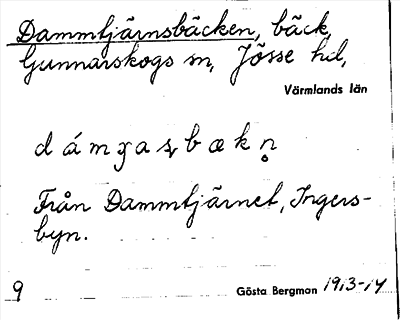 Dammtjärnsbäcken, bäck,
Gunnarskogs sn, Jösse hd,
Värmlands län
Från Dammtjärnet, Ingers-
byn.
9
Gösta Bergman 1913-14